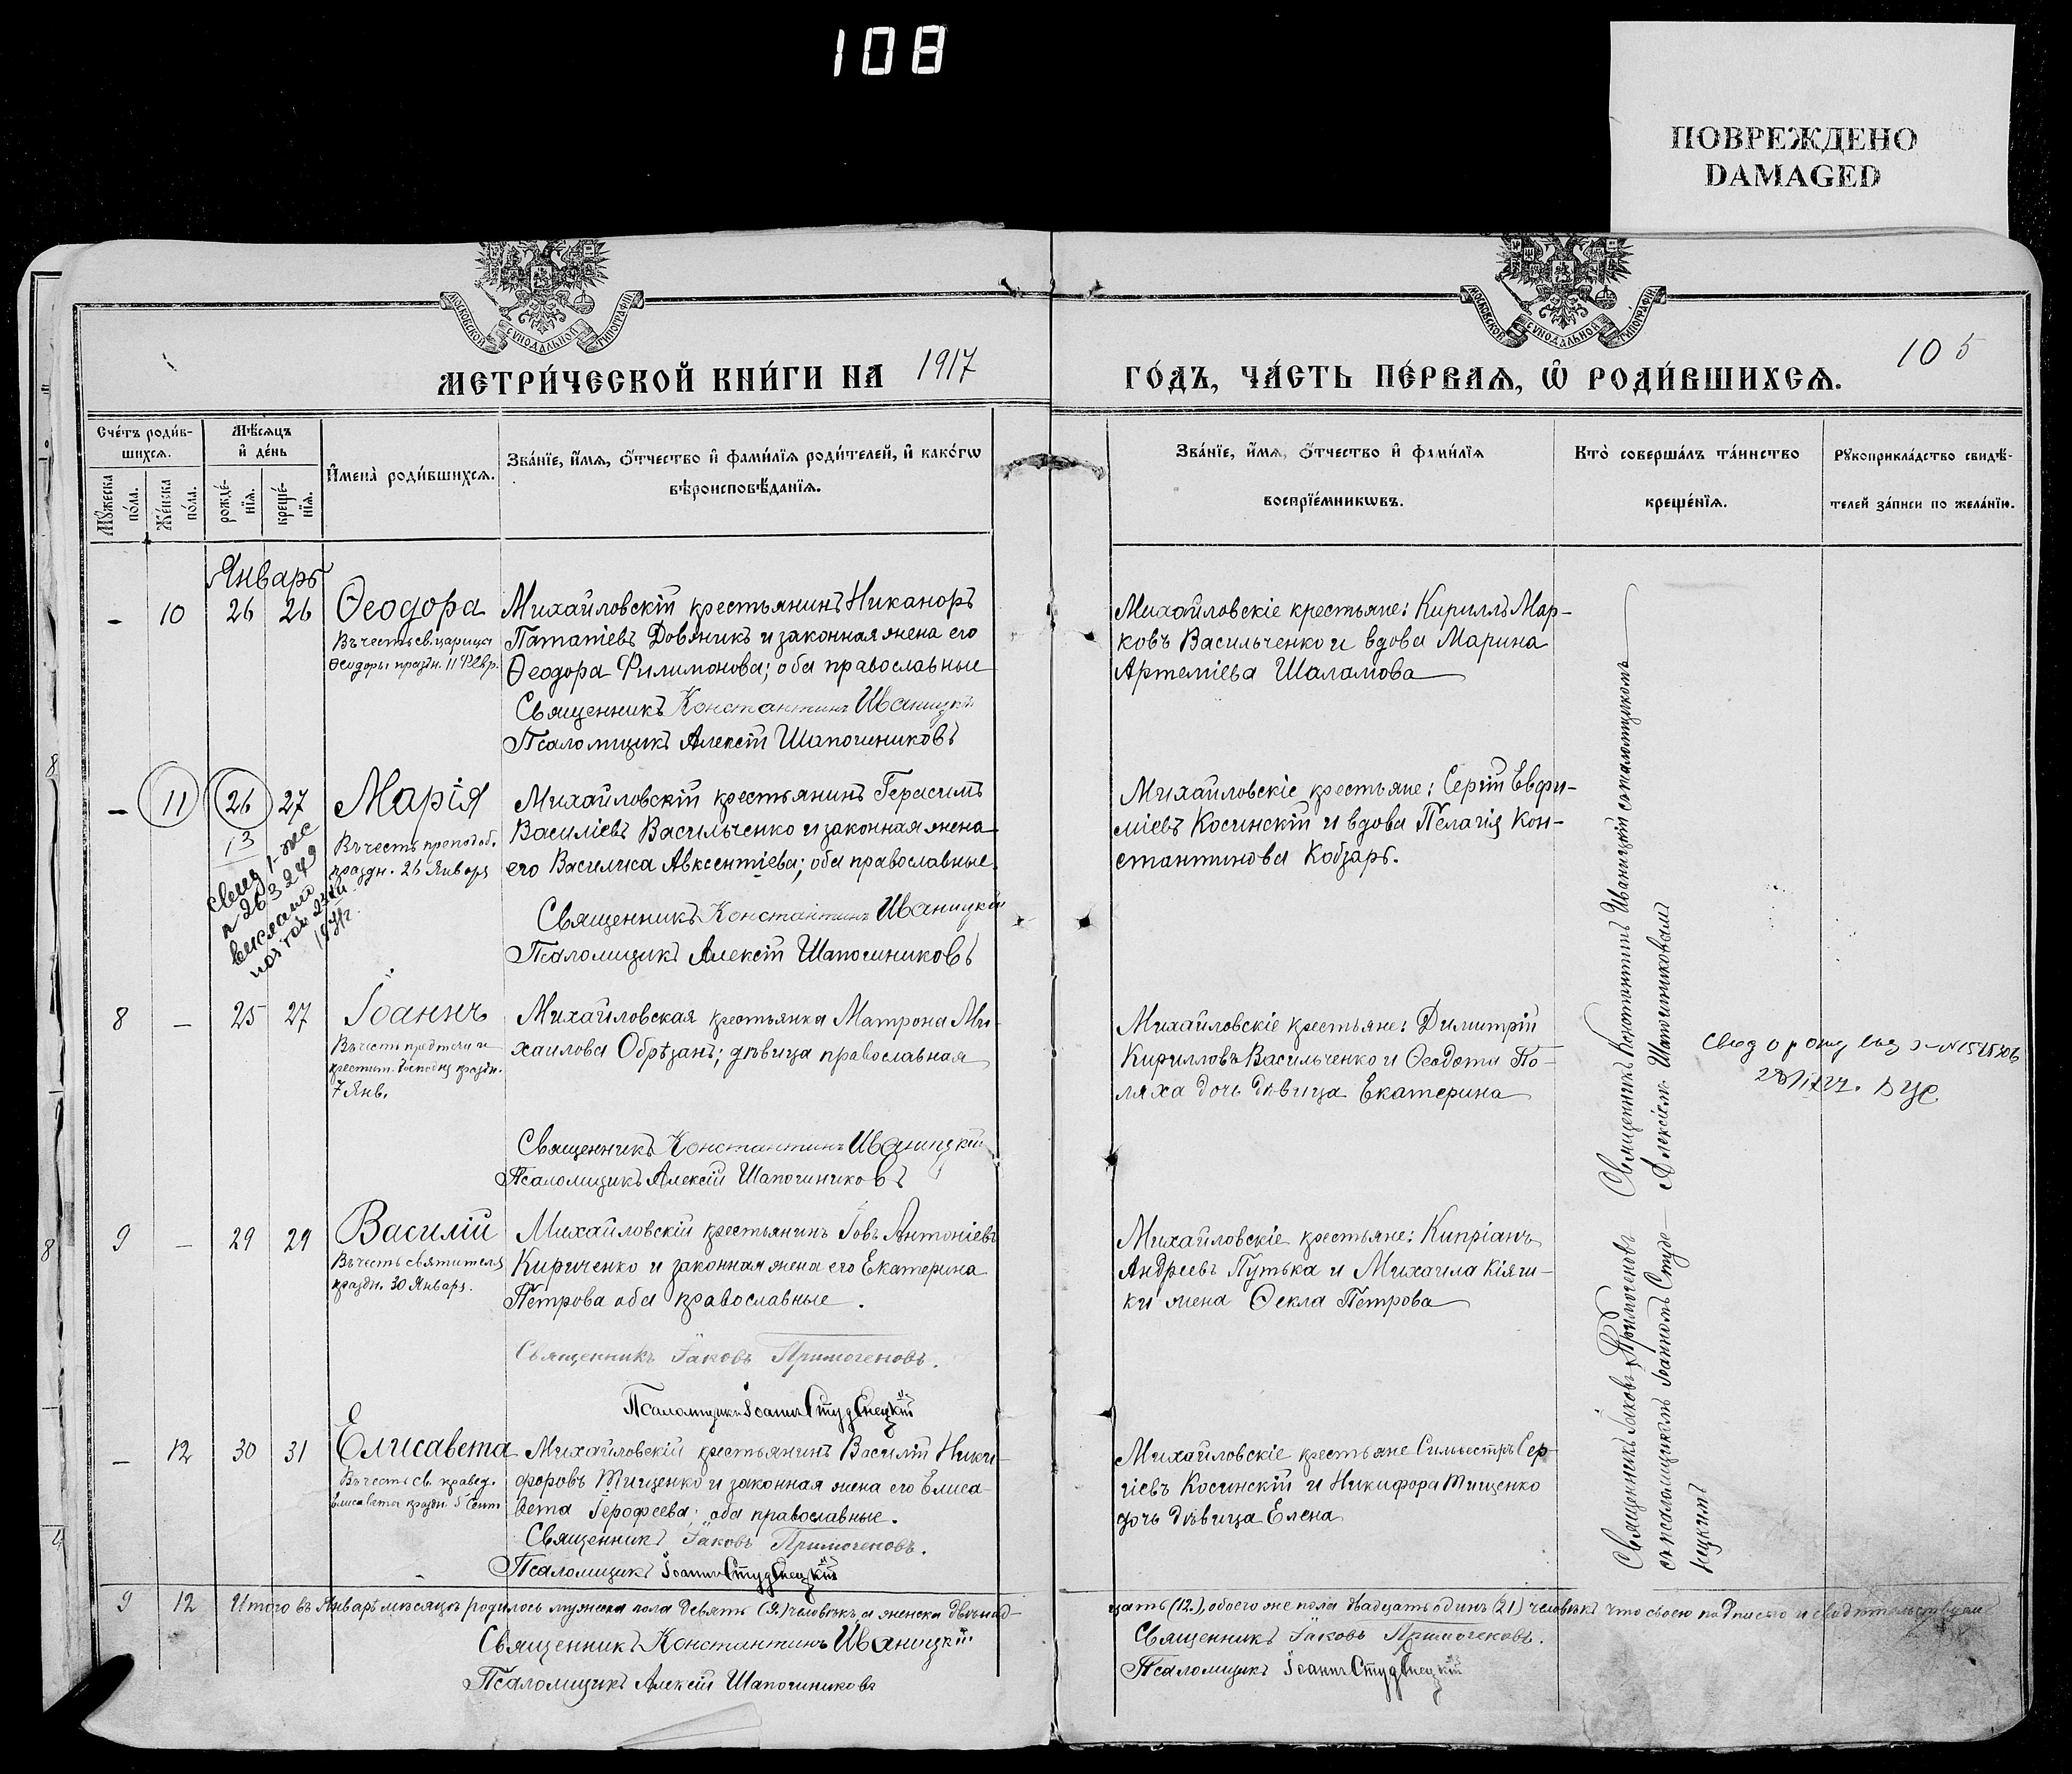 108
ПОВРЕЖДЕНО
DAMAGED
МОСКОВСКОЙ СѴНОДАЛЬНОЙ ТИПОГРАФІИ
МОСКОВСКОЙ СѴНОДАЛЬНОЙ ТИПОГРАФІИ
105
МЕТРИ́ЧЕСКОЙ КНИ́ГИ НА 1917 ГО́ДЪ, ЧА́СТЬ ПЕ́РВАѦ, Ѡ҆ РОДИ́ВШИХСѦ.
Сче́тъ роди́в-
шихсѧ.
Мꙋ́жеска по́ла.
Же́нска по́ла.
Мѣ́сѧцъ
и҆ де́нь
рожде́-
нїѧ.
креще́-
нїѧ.
И҆мена̀ роди́вшихсѧ.
Зва́нїе, и҆́мѧ, ѻ҆́тчество и҆ фами́лїѧ роди́телей, и҆ како́гѡ
вѣроисповѣ́данїѧ.
Зва́нїе, и҆́мѧ, ѻ҆́тчество и҆ фами́лїѧ
воспрїе́мникѡвъ.
Кто̀ соверша́лъ та́инство
креще́нїѧ.
Рꙋкоприкла́дство свидѣ́-
телей за́писи по жела́нїю.
Январь
- 10 26 26 Ѳеодора
Въ честь св. царицы
Ѳеодоры праздн. 11 Февр.
Михайловскій крестьянинъ Никаноръ
Патапіевъ Довяникъ и законная жена его
Ѳеодора Филимонова; оба православные
Священникъ Константинъ Иваницкій
Псаломщикъ Алексій Шапочниковъ
Михайловскіе крестьяне: Кириллъ Мар-
ковъ Васильченко и вдова Марина
Артеміева Шаламова
- 11 26 27 Марія
13
Въ честь преподоб.
праздн. 26 Января
1-же
263249
Михайловскій крестьянинъ Герасимъ
Василіевъ Васильченко и законная жена
его Василиса Авксентіева; оба православные
Священникъ Константинъ Иваницкій
Псаломщикъ Алексій Шапочниковъ
Михайловскіе крестьяне: Сергій Евфи-
міевъ Косинскій и вдова Пелагія Кон-
стантинова Кобзарь.
8 - 25 27 Іоаннъ
Въ честь предтечи и
крестит. Господня праздн.
7 Янв.
Михайловская крестьянка Матрона Ми-
хаилова Обрѣзанъ; дѣвица православная
Священникъ Константинъ Иваницкій
Псаломщикъ Алексій Шапочниковъ
Михайловскіе крестьяне: Димитрій
Кирилловъ Васильченко и Ѳеодота По-
ляха дочь дѣвица Екатерина
Священникъ Константинъ Иваницкій съ псаломщикомъ
Алексіемъ Шапочниковымъ
9 - 29 29 Василій
Въ честь святителя
праздн. 30 Января.
Михайловскій крестьянинъ Іовъ Антоніевъ
Кириченко и законная жена его Екатерина
Петрова оба православные.
Священникъ Іаковъ Примогеновъ.
Псаломщикъ Іоаннъ Студенецкій
Михайловскіе крестьяне: Кипріанъ
Андреевъ Путька и Михаила Кіяш-
ки жена Ѳекла Петрова
- 12 30 31 Елисавета
Въ честь св. правед.
Елисаветы праздн. 5 Сент.
Михайловскій крестьянинъ Василій Ники-
форовъ Тищенко и законная жена его Елиса-
вета Герофеева; оба православные.
Священникъ Іаковъ Примогеновъ.
Псаломщикъ Іоаннъ Студенецкій
Михайловскіе крестьяне Сильвестръ Сер-
гіевъ Косинскій и Никифора Тищенко
дочь дѣвица Елена
Священникъ Іаковъ Примогеновъ
съ псаломщикомъ Іоанномъ Студе-
нецкимъ
9 12 Итого въ Январѣ мѣсяцѣ родилось мужеска пола девять (9.) человѣкъ, а женска двѣнад-
цать (12.), обоего же пола двадцать одинъ (21) человѣкъ что своею подписью и свидѣтельствуемъ
Священникъ Константинъ Иваницкій
Псаломщикъ Алексій Шапочниковъ
Священникъ Іаковъ Примогеновъ.
Псаломщикъ Іоаннъ Студенецкій